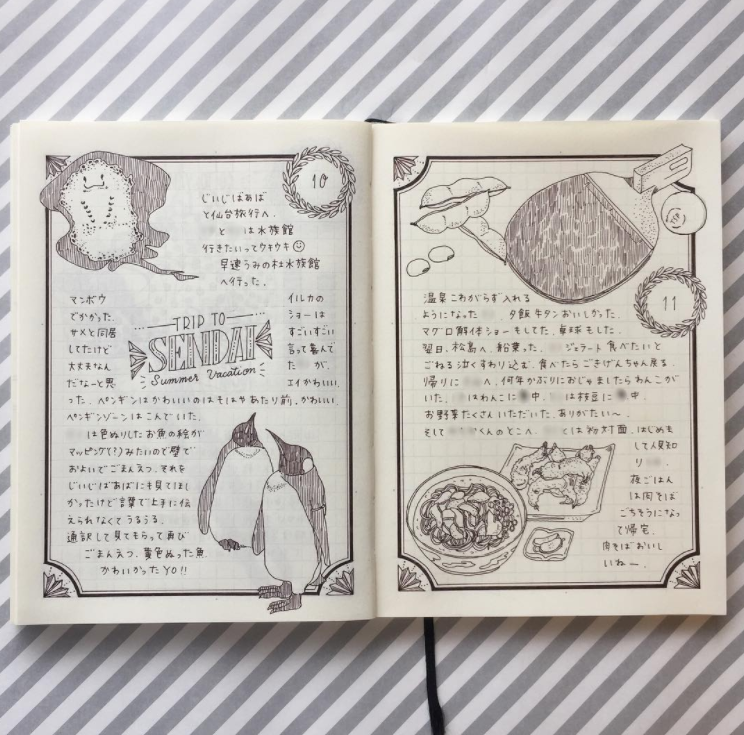 10
じいじばあば
と仙台旅行へ.
と は水族館
行きたいってウキウキ
早速うみの杜水族館
へ行った.
マンボウ
でかかった.
サメと同居
してたけど
大丈夫なん
だなーと思
TRIP TO
SENDAI
Summer Vacation
イルカの
ショーは
すごいすごい
言って喜んで
た が.
エイかわいい.
った. ペンギンはかわいいのはそりゃあたり前. かわいい.
ペンギンゾーンはこんでいた.
は色ぬりしたお魚の絵が
マッピング(?)みたいので壁で
およいでごまんえつ. それを
じいじばあばにも見てほし
かったけど言葉で上手に伝
えられなくてうるうる.
通訳して見てもらって再び
ごまんえつ. 黄色ぬった魚
かわいかったYO!!
11
温泉こわがらず入れる
ようになった . 夕飯牛タンおいしかった.
マグロ解体ショーもしてた. 卓球もした.
翌日、松島へ. 船乗った. ジェラート食べたいと
ごねる泣くすわり込む. 食べたらごきげんちゃん戻る.
帰りに へ. 何年かぶりにおじゃましたらわんこが
いた. はわんこに 中. は枝豆に 中.
お野菜たくさんいただいた. ありがたい〜.
そして くんのとこへ. とは初対面. はじめも
して人見知
り .
夜ごはん
は肉そば
ごちそうになっ
て帰宅.
肉そばおいし
いねー.